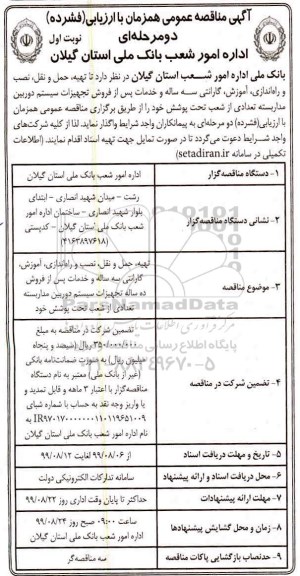 آگهی مناقصه عمومی همزمان با ارزیابی(فشرده)
دومرحله‌ای
نوبت اول
اداره امور شعب بانک ملی استان گیلان
بانک ملی اداره امور شعب استان گیلان در نظر دارد تا تهیه، حمل و نقل، نصب
و راه‌اندازی، آموزش، گارانتی سه ساله و خدمات پس از فروش تجهیزات سیستم دوربین
مداربسته تعدادی از شعب تحت پوشش خود را از طریق برگزاری مناقصه عمومی همزمان
با ارزیابی(فشرده) دو مرحله‌ای به پیمانکاران واجد شرایط واگذار نماید. لذا از کلیه شرکت‌های
واجد شرایط دعوت می‌گردد تا در صورت تمایل جهت تهیه اسناد اقدام نمایند. (اطلاعات
تکمیلی در سامانه setadiran.ir)
۱- دستگاه مناقصه‌گزار
اداره امور شعب بانک ملی استان گیلان
۲- نشانی دستگاه مناقصه‌گزار
رشت - میدان شهید انصاری - ابتدای
بلوار شهید انصاری - ساختمان اداره امور
شعب بانک ملی استان گیلان - کدپستی
(۴۱۶۳۸۹۷۶۱۸)
۳- موضوع مناقصه
تهیه، حمل و نقل، نصب و راه‌اندازی، آموزش،
گارانتی سه ساله و خدمات پس از فروش
ده ساله تجهیزات سیستم دوربین مداربسته
تعدادی از شعب تحت پوشش خود
۴- تضمین شرکت در مناقصه
تضمین شرکت در مناقصه به مبلغ
۳۵۰/۰۰۰/۰۰۰ ریال (سیصد و پنجاه
میلیون ریال) به صورت ضمانت‌نامه بانکی
(غیر از بانک ملی) معتبر به نام دستگاه
مناقصه‌گزار با اعتبار ۳ ماهه و قابل تمدید و
یا واریز وجه نقد به حساب با شماره شبای
به IR
نام اداره امور شعب بانک ملی استان گیلان
۵- تاریخ و مهلت دریافت اسناد
از ۹۹/۰۸/۰۶ لغایت ۹۹/۰۸/۱۲
۶- محل دریافت اسناد و ارائه پیشنهاد
سامانه تدارکات الکترونیکی دولت
۷- مهلت ارائه پیشنهادات
حداکثر تا پایان وقت اداری روز ۹۹/۰۸/۲۲
۸- زمان و محل گشایش پیشنهادها
ساعت ۰۹:۰۰ صبح روز ۹۹/۰۸/۲۴
اداره امور شعب بانک ملی استان گیلان
۹- حدنصاب بازگشایی پاکات مناقصه
سه مناقصه‌گر